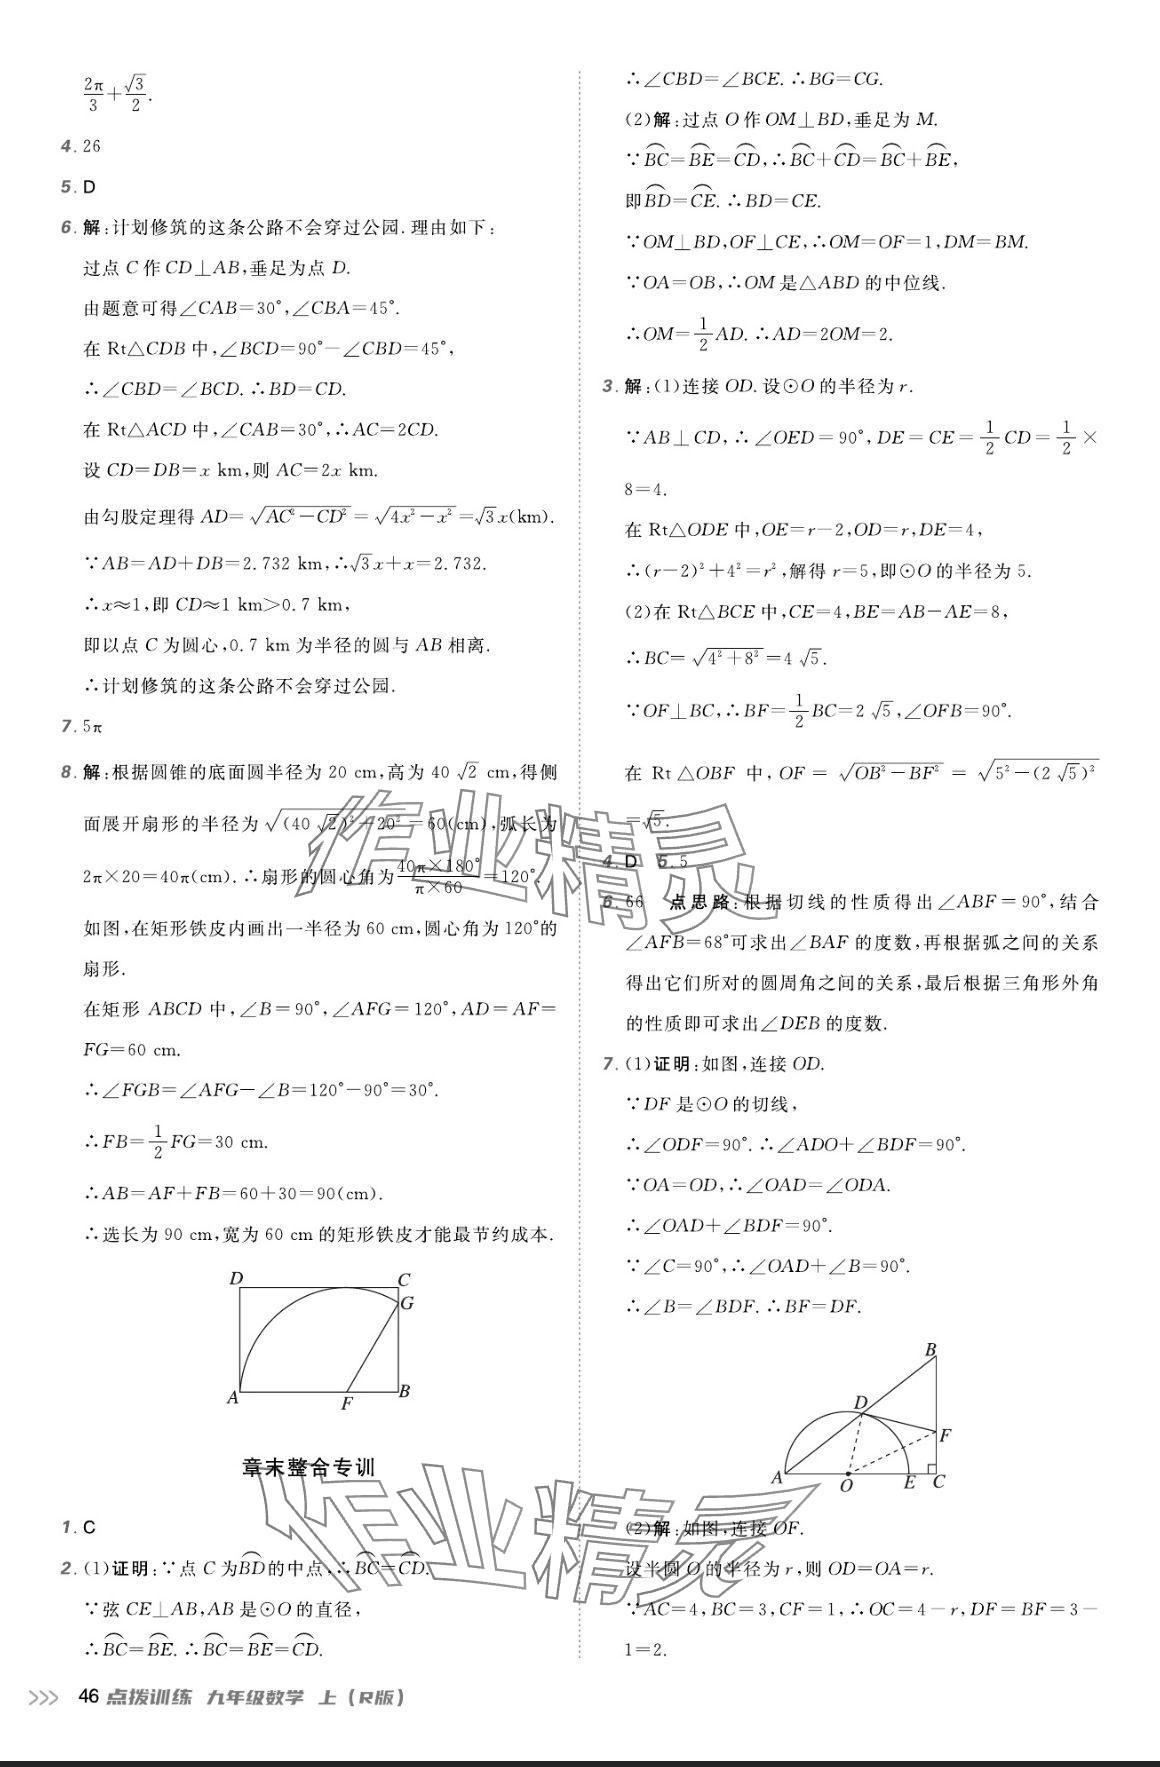 2π/3+√3/2.
4. 26
5. D
6. 解:计划修筑的这条公路不会穿过公园.理由如下:
过点 C 作 CD⊥AB,垂足为点 D.
由题意可得∠CAB=30°,∠CBA=45°.
在 Rt△CDB 中,∠BCD=90°-∠CBD=45°,
∴∠CBD=∠BCD.∴BD=CD.
在 Rt△ACD 中,∠CAB=30°,∴AC=2CD.
设 CD=DB=x km,则 AC=2x km.
由勾股定理得 AD=√(AC²-CD²)=√(4x²-x²)=√3x(km).
∵AB=AD+DB=2.732 km,∴√3x+x=2.732.
∴x≈1,即 CD≈1 km>0.7 km,
即以点 C 为圆心,0.7 km 为半径的圆与 AB 相离.
∴计划修筑的这条公路不会穿过公园.
7. 5π
8. 解:根据圆锥的底面圆半径为 20 cm,高为 40√2 cm,得侧
面展开扇形的半径为√((40√2)²+20²)=60(cm),弧长为
2π×20=40π(cm).∴扇形的圆心角为(40π×180°)/(π×60)=120°.
如图,在矩形铁皮内画出一半径为 60 cm,圆心角为 120°的
扇形.
在矩形 ABCD 中,∠B=90°,∠AFG=120°,AD=AF=
FG=60 cm.
∴∠FGB=∠AFG-∠B=120°-90°=30°.
∴FB=1/2FG=30 cm.
∴AB=AF+FB=60+30=90(cm).
∴选长为 90 cm,宽为 60 cm 的矩形铁皮才能最节约成本.
D C
G
A F B
章末整合专训
1. C
2. (1)证明:∵点 C 为B͡D的中点,∴B͡C=C͡D.
∵弦 CE⊥AB,AB 是⊙O 的直径,
∴B͡C=B͡E.∴B͡C=B͡E=C͡D.
∴∠CBD=∠BCE.∴BG=CG.
(2)解:过点 O 作 OM⊥BD,垂足为 M.
∵B͡C=B͡E=C͡D,∴B͡C+C͡D=B͡C+B͡E,
即B͡D=C͡E.∴BD=CE.
∵OM⊥BD,OF⊥CE,∴OM=OF=1,DM=BM.
∵OA=OB,∴OM 是△ABD 的中位线.
∴OM=1/2AD.∴AD=2OM=2.
3. 解:(1)连接 OD.设⊙O 的半径为 r.
∵AB⊥CD,∴∠OED=90°,DE=CE=1/2CD=1/2×
8=4.
在 Rt△ODE 中,OE=r-2,OD=r,DE=4,
∴(r-2)²+4²=r²,解得 r=5,即⊙O 的半径为 5.
(2)在 Rt△BCE 中,CE=4,BE=AB-AE=8,
∴BC=√(4²+8²)=4√5.
∵OF⊥BC,∴BF=1/2BC=2√5,∠OFB=90°.
在 Rt△OBF 中,OF=√(OB²-BF²)=√(5²-(2√5)²)
=√5.
4. D 5. 5
6. 66 点思路:根据切线的性质得出∠ABF=90°,结合
∠AFB=68°可求出∠BAF 的度数,再根据弧之间的关系
得出它们所对的圆周角之间的关系,最后根据三角形外角
的性质即可求出∠DEB 的度数.
7. (1)证明:如图,连接 OD.
∵DF 是⊙O 的切线,
∴∠ODF=90°.∴∠ADO+∠BDF=90°.
∵OA=OD,∴∠OAD=∠ODA.
∴∠OAD+∠BDF=90°.
∵∠C=90°,∴∠OAD+∠B=90°.
∴∠B=∠BDF.∴BF=DF.
B
D
F
A O E C
(2)解:如图,连接 OF.
设半圆 O 的半径为 r,则 OD=OA=r.
∵AC=4,BC=3,CF=1,∴OC=4-r,DF=BF=3-
1=2.
作业精灵
作业精灵
46 点拨训练 九年级数学 上(R版)